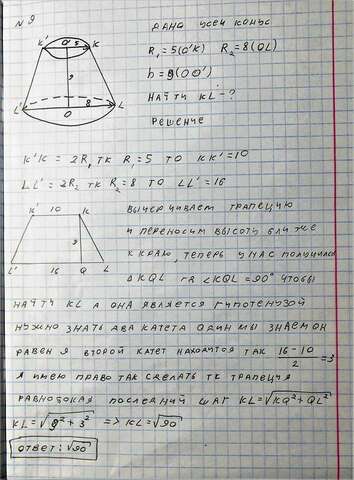 N 9
ДАНО УСЕЧ КОНУС
K' O' 5 K
R₁ = 5(O'K) R₂ = 8(OL)
9
h = 9(OO')
НАЙТИ KL - ?
L' 8 L
O
РЕШЕНИЕ
K'K = 2R₁ ТК R₁ = 5 ТО KK' = 10
LL' = 2R₂ ТК R₂ = 8 ТО LL' = 16
K' 10 K
ВЫЧЕРЧИВАЕМ ТРАПЕЦИЮ
9
И ПЕРЕНОСИМ ВЫСОТУ БЛИЖЕ
К КРАЮ, ТЕПЕРЬ У НАС ПОЛУЧИЛСЯ
L' 16 Q L
Δ KQL ГД ∠KQL = 90° ЧТОБЫ
НАЙТИ KL А ОНА ЯВЛЯЕТСЯ ГИПОТЕНУЗОЙ
НУЖНО ЗНАТЬ ДВА КАТЕТА ОДИН МЫ ЗНАЕМ ОН
РАВЕН 9 ВТОРОЙ КАТЕТ НАХОДИТСЯ ТАК (16-10)/2 = 3
Я ИМЕЮ ПРАВО ТАК СДЕЛАТЬ ТК ТРАПЕЦИЯ
РАВНОБОКАЯ ПОСЛЕДНИЙ ШАГ KL = √(KQ² + QL²)
KL = √(9² + 3²) => KL = √90
ОТВЕТ: √90